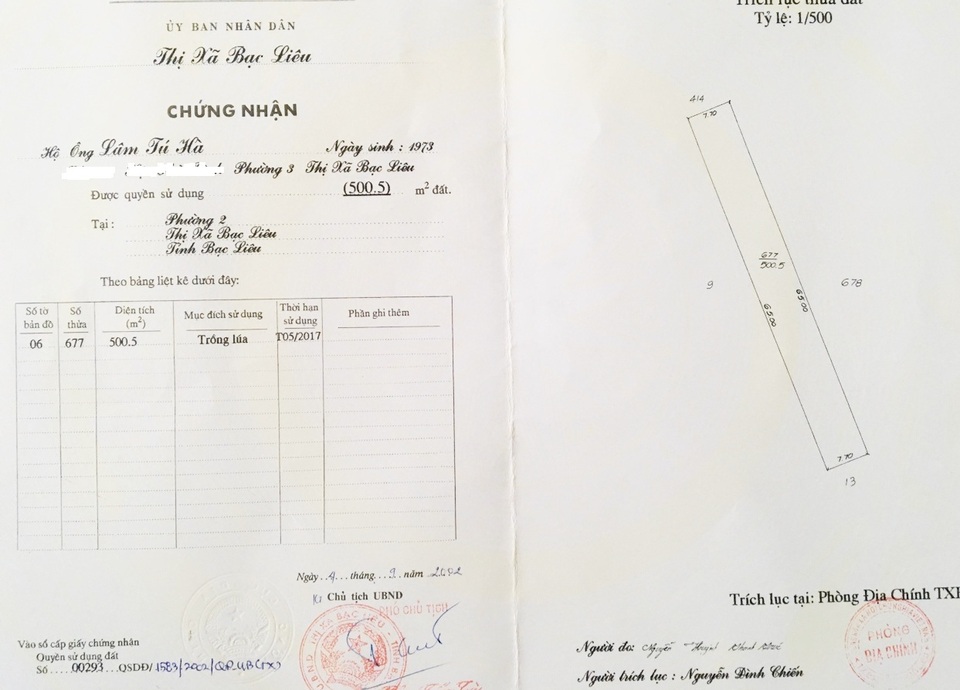 ỦY BAN NHÂN DÂN
Thị Xã Bạc Liêu
CHỨNG NHẬN
Hộ Ông Lâm Tú Hà Ngày sinh : 1973
Phường 3 Thị Xã Bạc Liêu
Được quyền sử dụng (500.5) m² đất.
Tại : Phường 2
Thị Xã Bạc Liêu
Tỉnh Bạc Liêu
Theo bảng liệt kê dưới đây:
Số tờ bản đồ Số thửa Diện tích (m²) Mục đích sử dụng Thời hạn sử dụng Phần ghi thêm
06 677 500.5 Trồng lúa T05/2017
Ngày 4 tháng 9 năm 2002
Chủ tịch UBND
PHÓ CHỦ TỊCH
Vào sổ cấp giấy chứng nhận
Quyền sử dụng đất
Số 00293 QSDĐ/ 1583/2002/QĐ.UB(TX)
Trích lục thửa đất
Tỷ lệ: 1/500
414
7.70
677
500.5
9
678
65.00
65.00
7.70
13
Trích lục tại: Phòng Địa Chính TX
PHÒNG
ĐỊA CHÍNH
Người đo: Nguyễn
Người trích lục : Nguyễn Đình Chiến